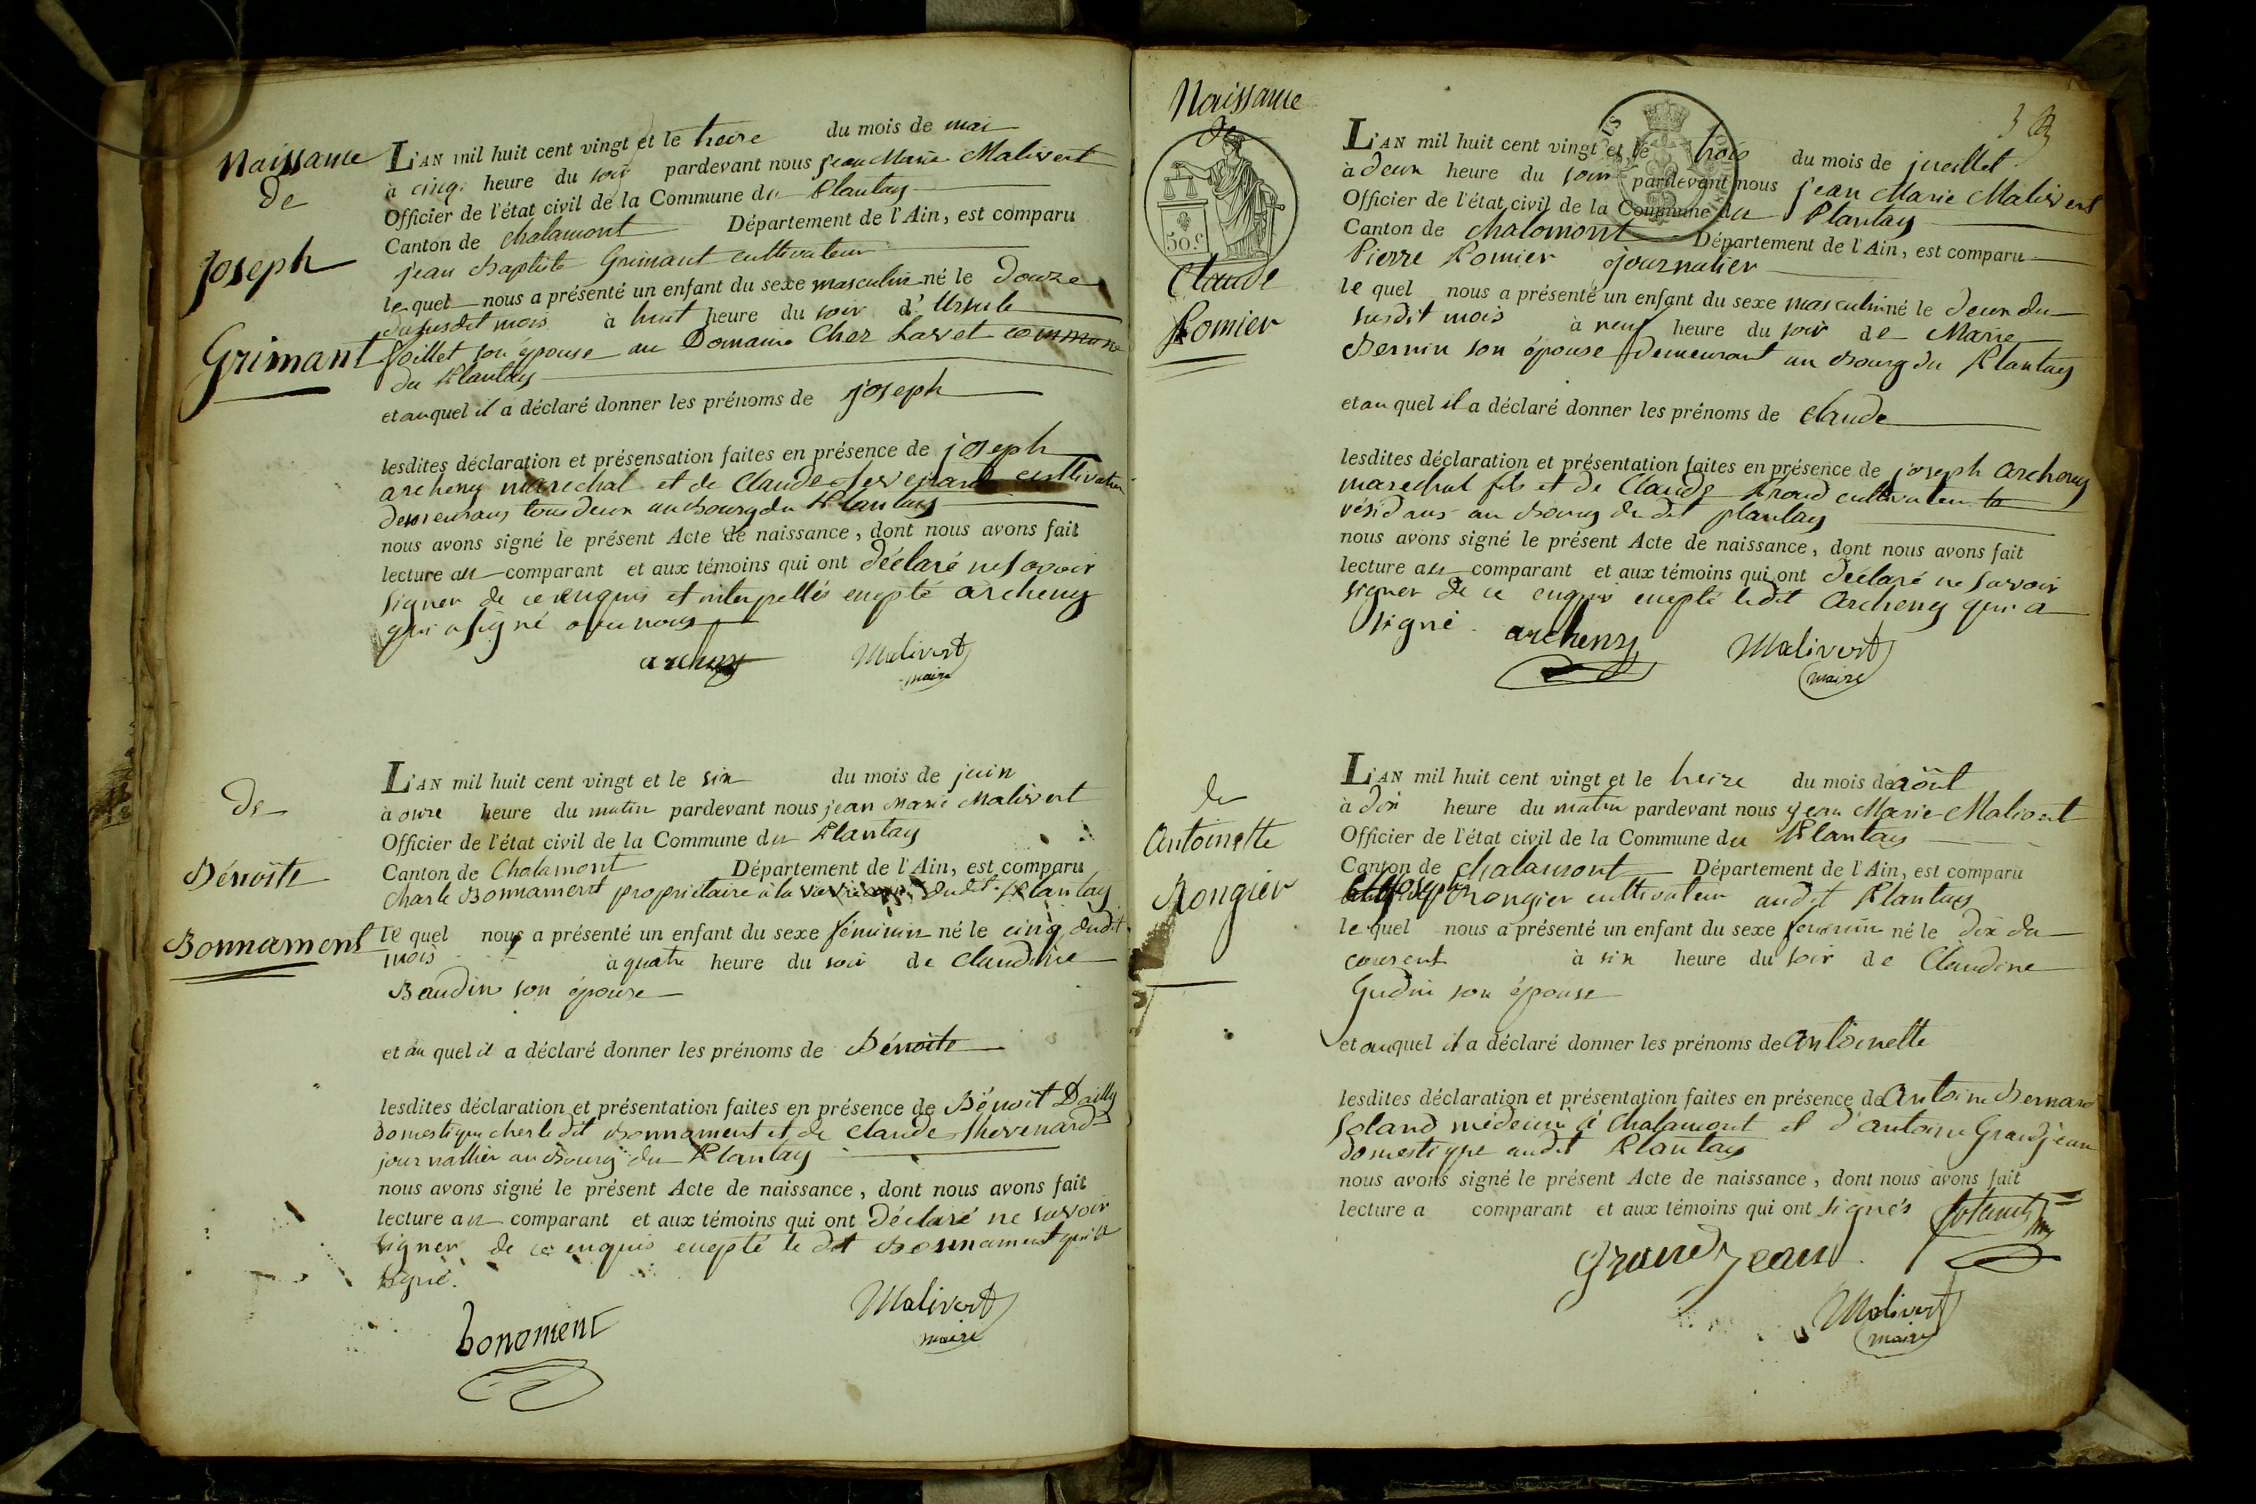 Naissance
de
Joseph
Grimant
L'AN mil huit cent vingt et le treize du mois de mai
à cinq heure du soir pardevant nous jean Marie Malivert
Officier de l'état civil de la Commune du Plantay
Canton de Chalamont Département de l'Ain, est comparu
jean Baptiste Grimant cultivateur
lequel nous a présenté un enfant du sexe masculin né le Douze
du susdit mois à huit heure du soir d'Ursule
son épouse au Domaine Chez Larvet commune
du Plantay
et auquel il a déclaré donner les prénoms de joseph
lesdites déclaration et présensation faites en présence de joseph
archeny marechal et de Claude cultivateur
demeurans tous deux au Bourg du Plantay
nous avons signé le présent Acte de naissance, dont nous avons fait
lecture au comparant et aux témoins qui ont déclaré ne savoir
signer de ce enquis et interpellés enepté archeny
qui a signé avec nous
archeny Malivert
maire
de
Bénoîte
Bonnament
L'AN mil huit cent vingt et le six du mois de juin
à onze heure du matin pardevant nous jean Marie Malivert
Officier de l'état civil de la Commune du Plantay
Canton de Chalamont Département de l'Ain, est comparu
Charle Bonnament propriétaire à la dudt. Plantay
le quel nous a présenté un enfant du sexe féminin né le cinq dudit
mois à quatre heure du soir de Claudine
Baudin son épouse
et au quel il a déclaré donner les prénoms de Bénoîte
lesdites déclaration et présentation faites en présence de Bénoit Dailly
domestique chez le dit Bonnament et de Claude thevenard
journallier au Bourg du Plantay
nous avons signé le présent Acte de naissance, dont nous avons fait
lecture au comparant et aux témoins qui ont déclaré ne savoir
signer de ce enquis enepté le dit Bonnament qui a
signé.
bonoment Malivert
maire
Naissance
de
50.c
Claude
Pomier
L'AN mil huit cent vingt et le trois du mois de jueillet
à deux heure du soir pardevant nous jean Marie Malivert
Officier de l'état civil de la Commune du Plantay
Canton de Chalamont Département de l'Ain, est comparu
Pierre Pomier journalier
le quel nous a présenté un enfant du sexe masculin né le deux du
susdit mois à neuf heure du soir de Marie
Bernin son épouse demeurant au Bourg du Plantay
et au quel il a déclaré donner les prénoms de Claude
lesdites déclaration et présentation faites en présence de joseph archeny
marechal fils et de Claude Proud cultivateur
résidans au Bourg du dit plantay
nous avons signé le présent Acte de naissance, dont nous avons fait
lecture au comparant et aux témoins qui ont déclaré ne savoir
signer de ce enquis enepté ledit archeny qui a
signé.
archeny Malivert
maire
de
Antoinette
Rongier
L'AN mil huit cent vingt et le treize du mois de aôut
à dix heure du matin pardevant nous jean Marie Malivert
Officier de l'état civil de la Commune du Plantay
Canton de Chalamont Département de l'Ain, est comparu
joseph Rongier cultivateur audit Plantay
le quel nous a présenté un enfant du sexe feminin né le dix du
courent à six heure du soir de Claudine
Gudin son épouse
et auquel il a déclaré donner les prénoms de antoinette
lesdites déclaration et présentation faites en présence de antoine Bernard
Soland médecin à Chalamont et d'antoine Grandjean
domestique audit Plantay
nous avons signé le présent Acte de naissance, dont nous avons fait
lecture a comparant et aux témoins qui ont signés
Grandjean
Malivert
maire